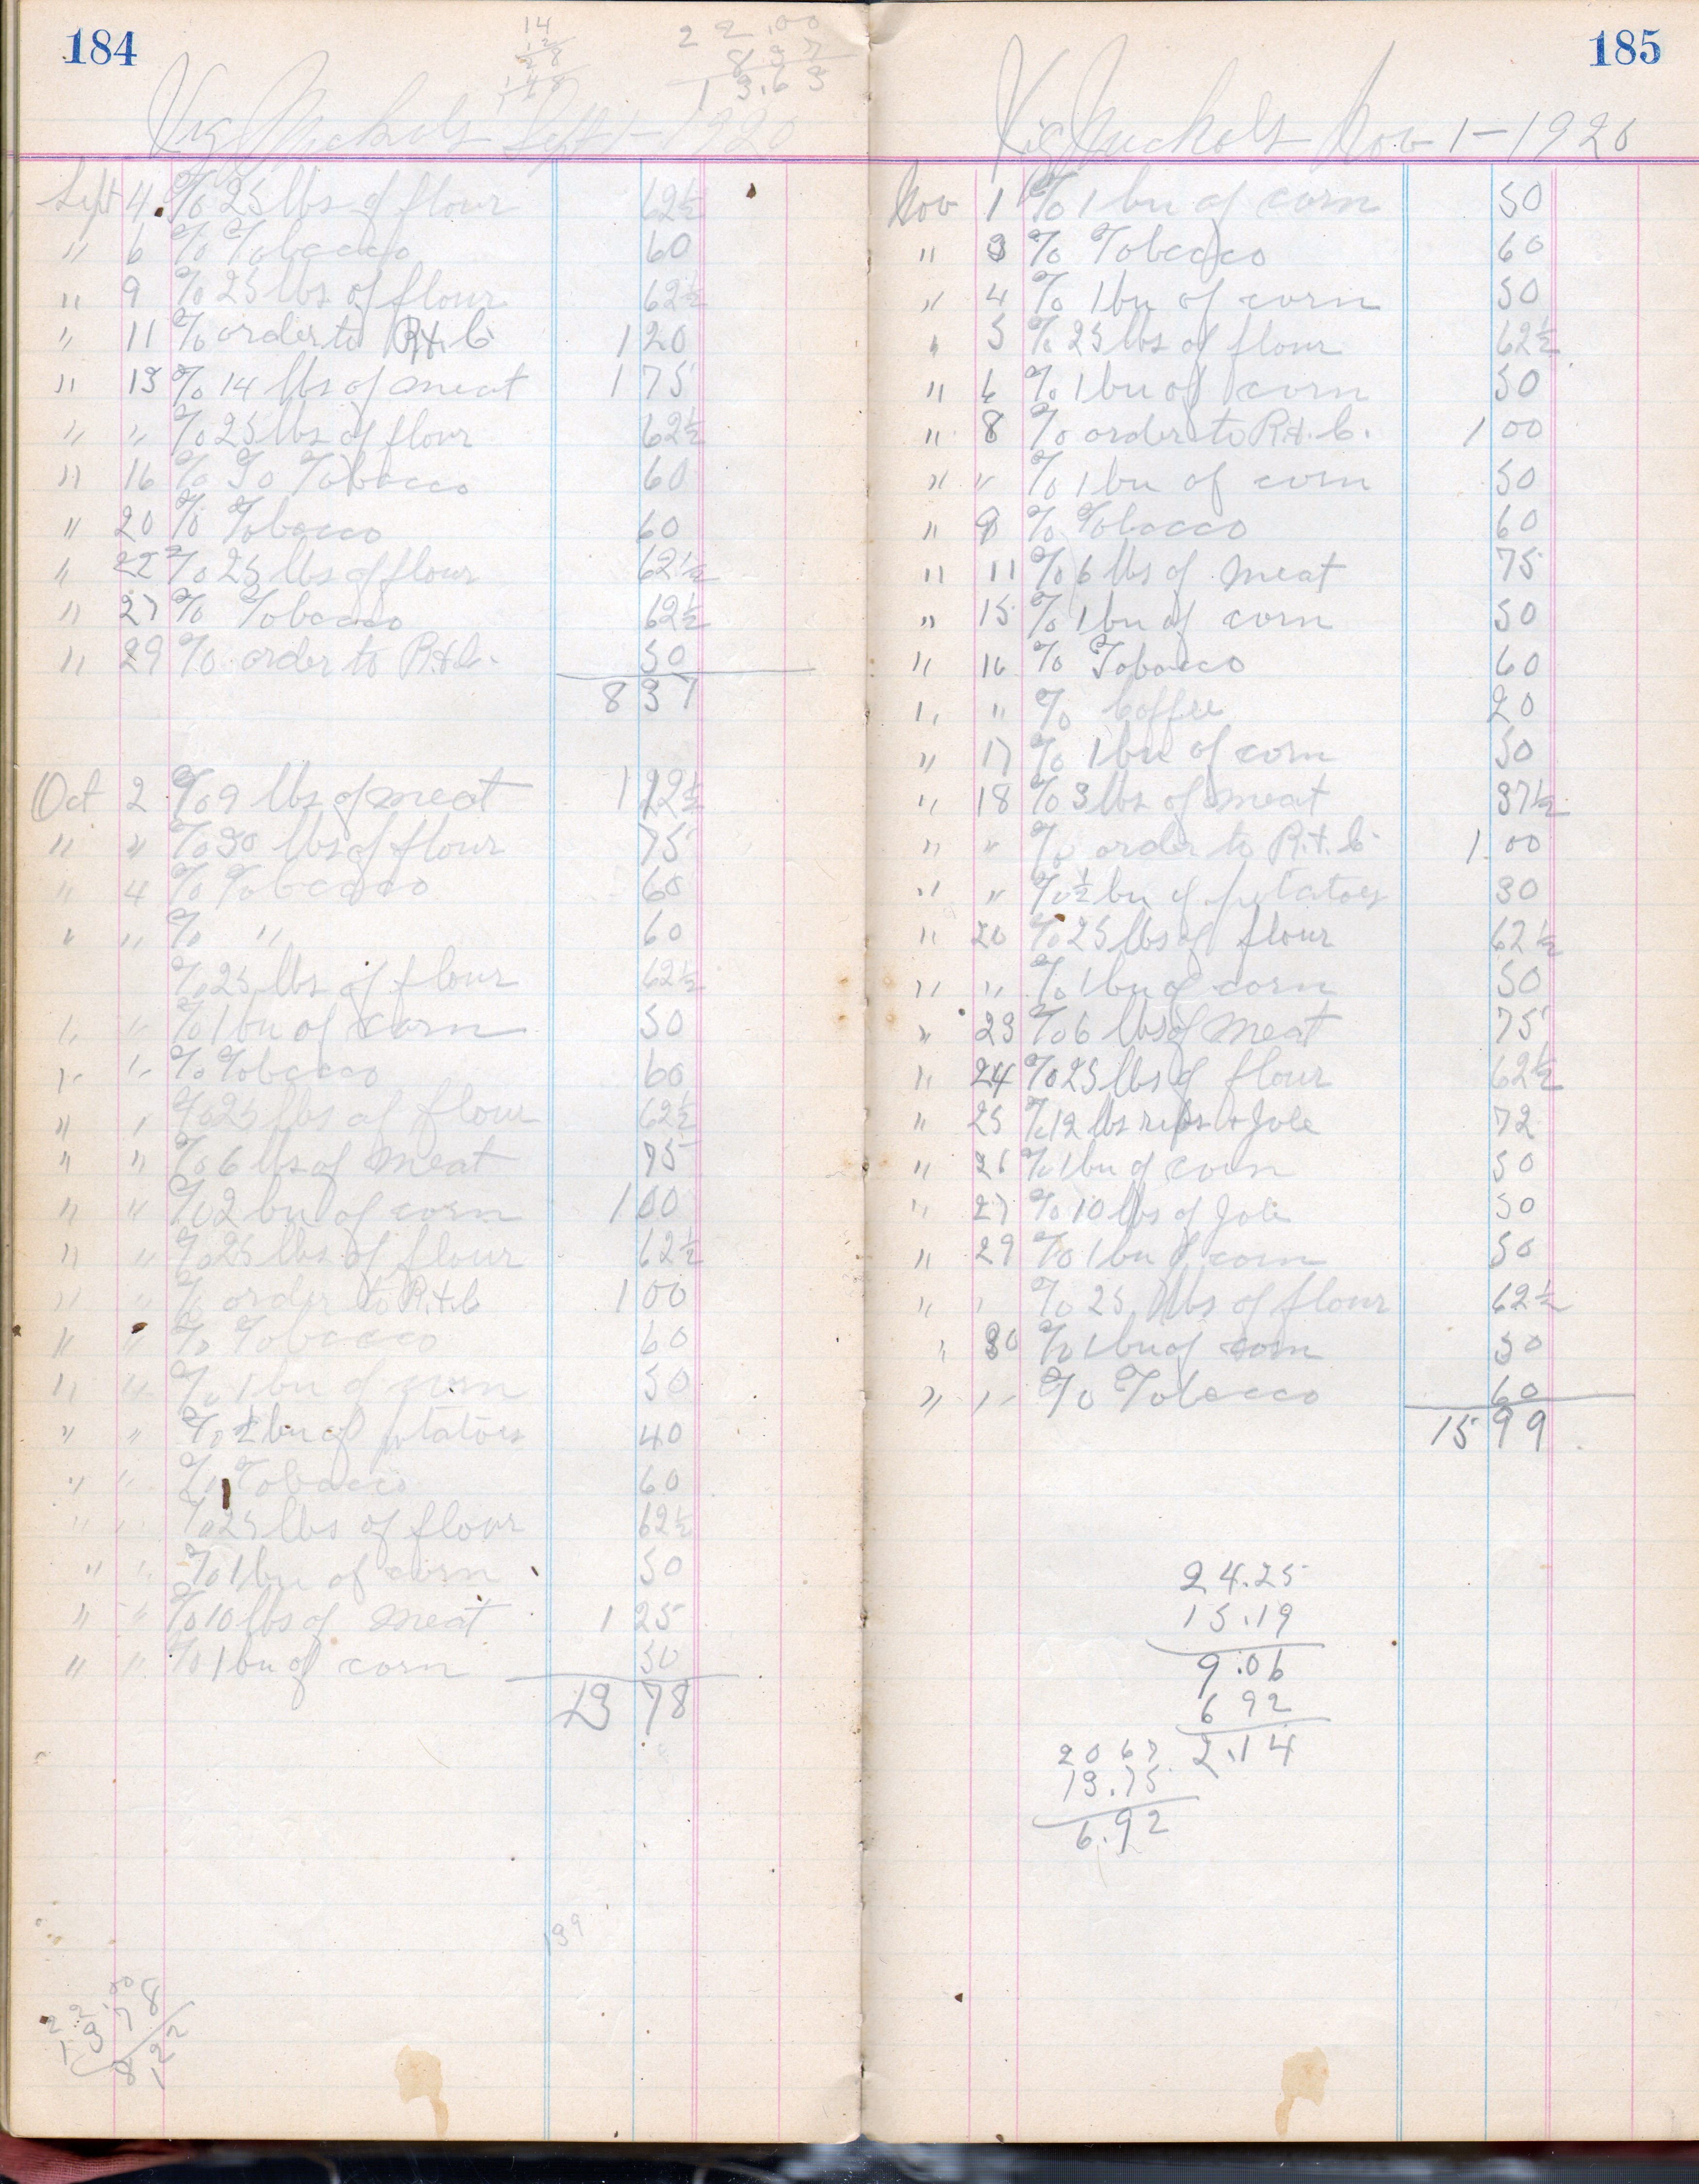 184
14
22.00
8 37
13.63
Nickels Sept 1 - 1920
Sept 4 % 25 lbs of flour 62½
" 6 % Tobacco 60
" 9 % 25 lbs of flour 62½
" 11 % order to R.H.C. 1 20
" 13 % 14 lbs of meat 1 75
" " % 25 lbs of flour 62½
" 16 % Tobacco 60
" 20 % Tobacco 60
" 22 % 25 lbs of flour 62½
" 27 % Tobacco 62½
" 29 % order to R.H.C. 50
8 37
Oct 2 % 9 lbs of meat 1 12½
" " % 30 lbs of flour 75
" 4 % Tobacco 60
" " % " 60
% 25 lbs of flour 62½
" " % 1 bu of corn 50
" " % Tobacco 60
" " % 25 lbs of flour 62½
" " % 6 lbs of meat 75
" " % 2 bu of corn 1 00
" " % 25 lbs of flour 62½
" " % order to R.H.C 1 00
" " % Tobacco 60
" " % 1 bu of corn 50
" " % ½ bu of potatoes 40
" " % Tobacco 60
" " % 25 lbs of flour 62½
" " % 1 bu of corn 50
" " % 10 lbs of meat 1 25
" " % 1 bu of corn 50
13 78
199
22.00
13 78
8 22
185
Nickels Nov 1 - 1920
Nov 1 % 1 bu of corn 50
" 3 % Tobacco 60
" 4 % 1 bu of corn 50
" 5 % 25 lbs of flour 62½
" 6 % 1 bu of corn 50
" 8 % order to R.H.C. 1 00
" " % 1 bu of corn 50
" 9 % Tobacco 60
" 11 % 6 lbs of meat 75
" 15 % 1 bu of corn 50
" 16 % Tobacco 60
" " % Coffee 20
" 17 % 1 bu of corn 50
" 18 % 3 lbs of meat 37½
" " % order to R.H.C. 1 00
" " % ½ bu of potatoes 30
" 20 % 25 lbs of flour 62½
" " % 1 bu of corn 50
" 23 % 6 lbs of meat 75
" 24 % 25 lbs of flour 62½
" 25 % 12 lbs ribs + Jole 72
" 26 % 1 bu of corn 50
" 27 % 10 lbs of Jole 50
" 29 % 1 bu of corn 50
" " % 25 lbs of flour 62½
" 30 % 1 bu of corn 50
" " % Tobacco 60
15 99
24.25
15.19
9.06
6 92
2.14
20 67
13.75
6.92